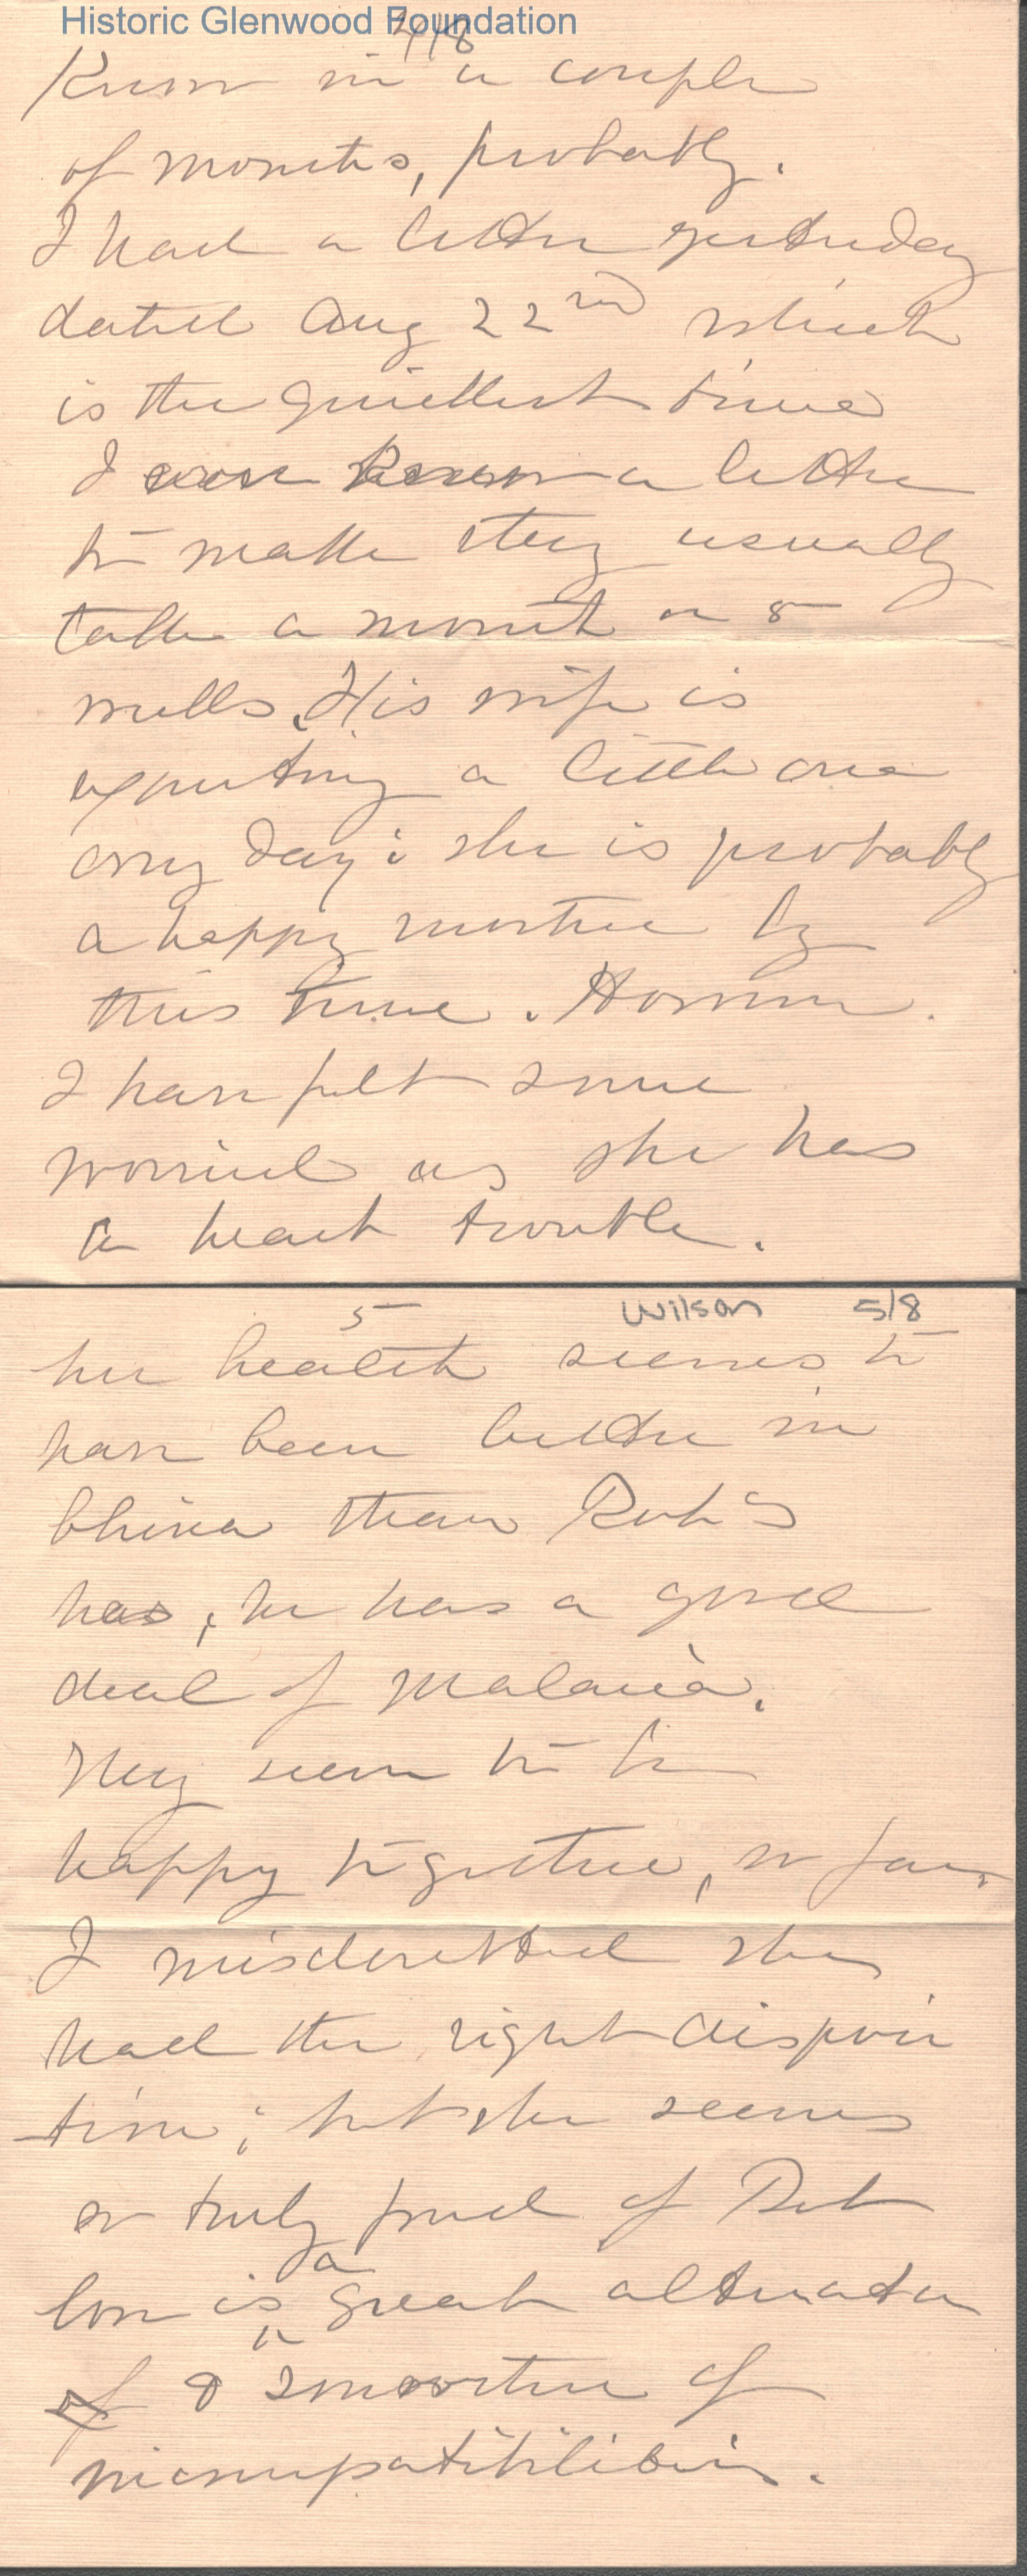 Historic Glenwood Foundation
4/8
Know in a couple
of months, probably.
I had a letter yesterday
dated Aug 22nd which
is the quickest time
I ever knew a letter
to make they usually
take a month or 5
weeks. His wife is
expecting a little one
any day; she is probably
a happy mother by
this time. However.
I have felt some
worried as she has
a heart trouble.
5 Wilson 5/8
her health seems to
have been better in
China than Rob's
has; he has a good
deal of malaria.
They seem to be
happy together, so far.
I misdoubted she
had the right disposi
tion; but she seems
so truly proud of Rob
a
love is great alternator
of & smoother of
incompatibilities.